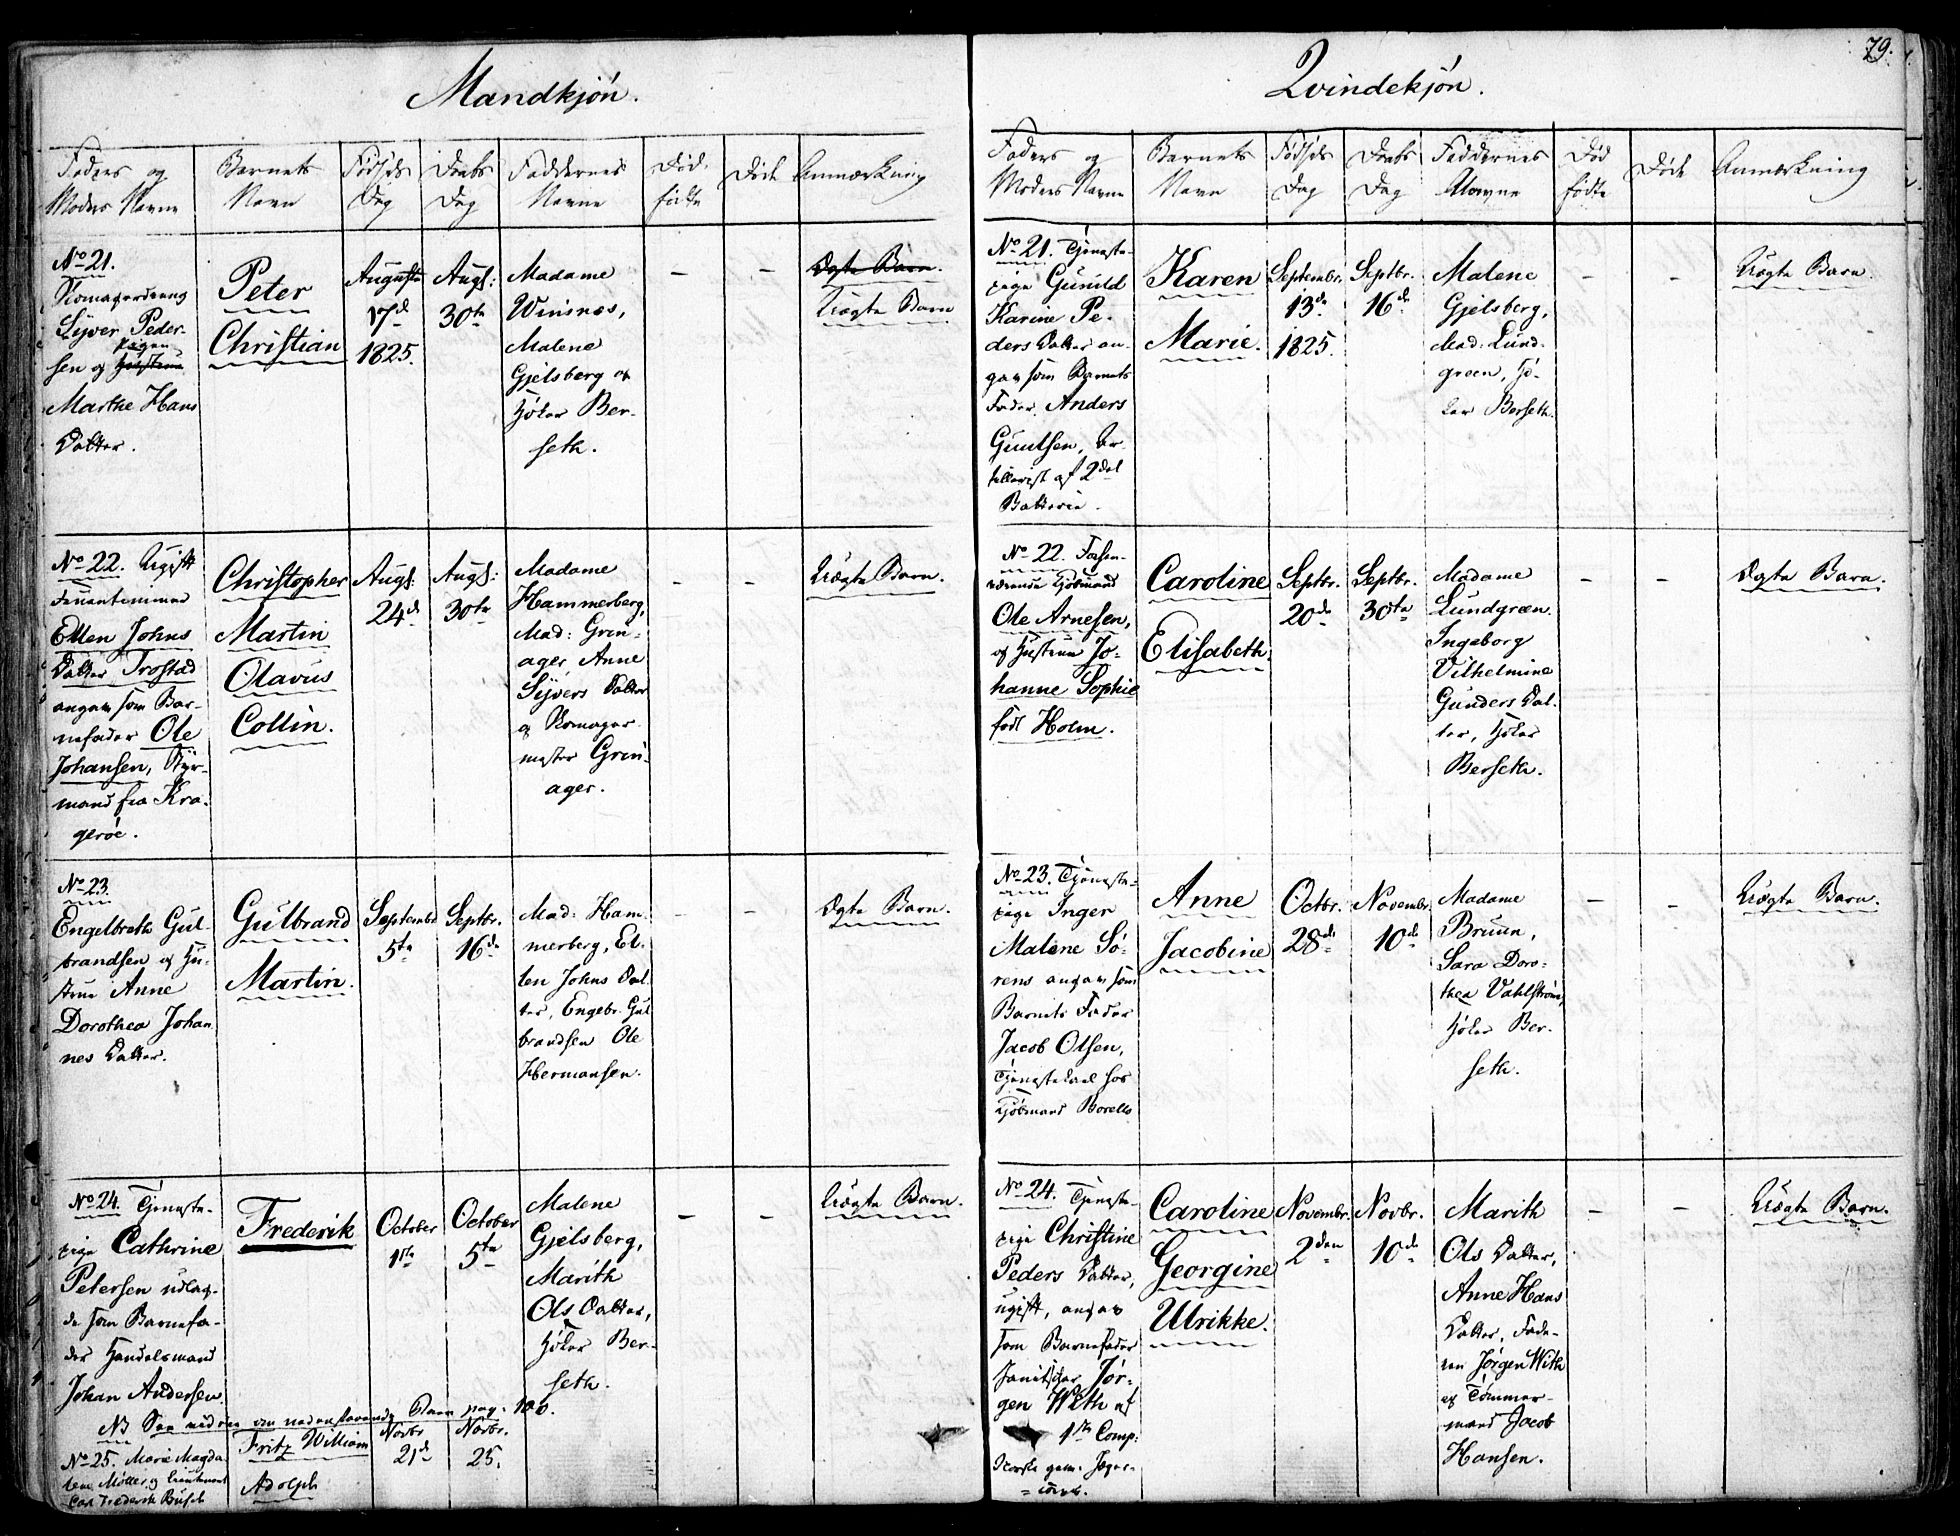 79.
Mandkjøn.
Faders og
Moders Navne
Barnets
Navn
Fødsels
Dag
Daabs
Dag
Faddernes
Navne
Død
fødte
Døde
Anmærkning
No 21.
Sÿver Peder-
Pigen
sen og
Marthe Hans
Datter.
Peter
Christian
Augusti
17d
1825.
Augs:
30te
Madame
Winsnæs,
Malene
Gjelsberg og
Peter Ber-
seth.
-
-
Ægte Barn.
Uægte Barn
No 22. Ugift
Fruentimmer
Ellen Johns
Datter Trostad
angav som Bar-
nefader Ole
Johansen, Styr-
mand fra Kra-
gerøe.
Christopher
Martin
Olavus
Collin.
Augs:
24d
Augs:
30te
Madame
Hammerberg,
Mad: Grin-
ager, Anne
Sÿvers Datter
og
mester Grin-
ager.
-
-
Uægte Barn.
No 23.
Engelbreth Gul-
brandsen og Hu-
strue Anne
Dorothea Johan
nes Datter.
Gulbrand
Martin.
Septembr
5te
Septbr.
16de
Mad: Ham-
merberg, El-
len Johns Dat-
ter, Engebr. Gul
brandsen Ole
Hermansen.
-
-
Ægte Barn.
No 24. Tjeneste-
pige Cathrine
Petersen udlag-
de som Barnefa-
der Handelsmand
Johan Andersen.
Frederik
October
1ste
October
5te
Malene
Gjelsberg,
Marith
Ols Datter,
Ber-
seth.
-
-
Uægte Barn.
NB See videre om nedenstaaende Barn pag. 100.
No 25. Marie Magda
lene Møller og Lieutenant
Carl Frederik Busch
Fritz William
Adolph
Novbr
21d
Novbr.
25.
Qvindekjøn.
Faders og
Moders Navne
Barnets
Navn
Fødsels
Dag
Daabs
Dag
Faddernes
Navne
Død
fødte
Døde
Anmærkning
No 21. Tjeneste-
pige Gunild
Karine Pe-
ders Datter an-
gav som Barnets
Fader Anders
Guulsen, Ar-
tillerist af 2det
Batterie.
Karen
Marie.
Septembr.
13de
1825.
Septbr.
16de
Malene
Gjelsberg,
Mad: Lund-
green,
Berseth.
-
-
Uægte Barn.
No 22.
Ole Arnesen,
og Hustrue Jo-
hanne Sophie
født Holm.
Caroline
Elisabeth.
Septbr.
20de
Septbr.
30te
Madame
Lundgreen
Ingeborg
Vilhelmine
Gunders Dat-
ter,
Berseth.
-
-
Ægte Barn.
No 23. Tjeneste-
pige Inger
Malene Sø-
rens angav som
Barnets Fader
Jacob Olsen,
Tjenestekarl hos
Kjøbmand Borells
Anne
Jacobine
Octbr.
28de
Novembr
10de
Madame
Bruun,
Sara Doro-
thea Vahlstrøm,
Ber-
seth.
-
-
Uægte Barn.
No 24. Tjeneste-
pige Christine
Peders Datter,
ugift, angav
som Barnefader
Janitschar Jør-
gen With af
1ste Comp:
Norske gew. Jæger-
corps.
Caroline
Georgine
Ulrikke.
Novembr.
2den
Novbr.
10de
Marith
Ols Datter,
Anne Hans
Datter, Fade-
ren Jørgen With
og Tømmer-
mand Jacob
Hansen.
-
-
Uægte Barn.